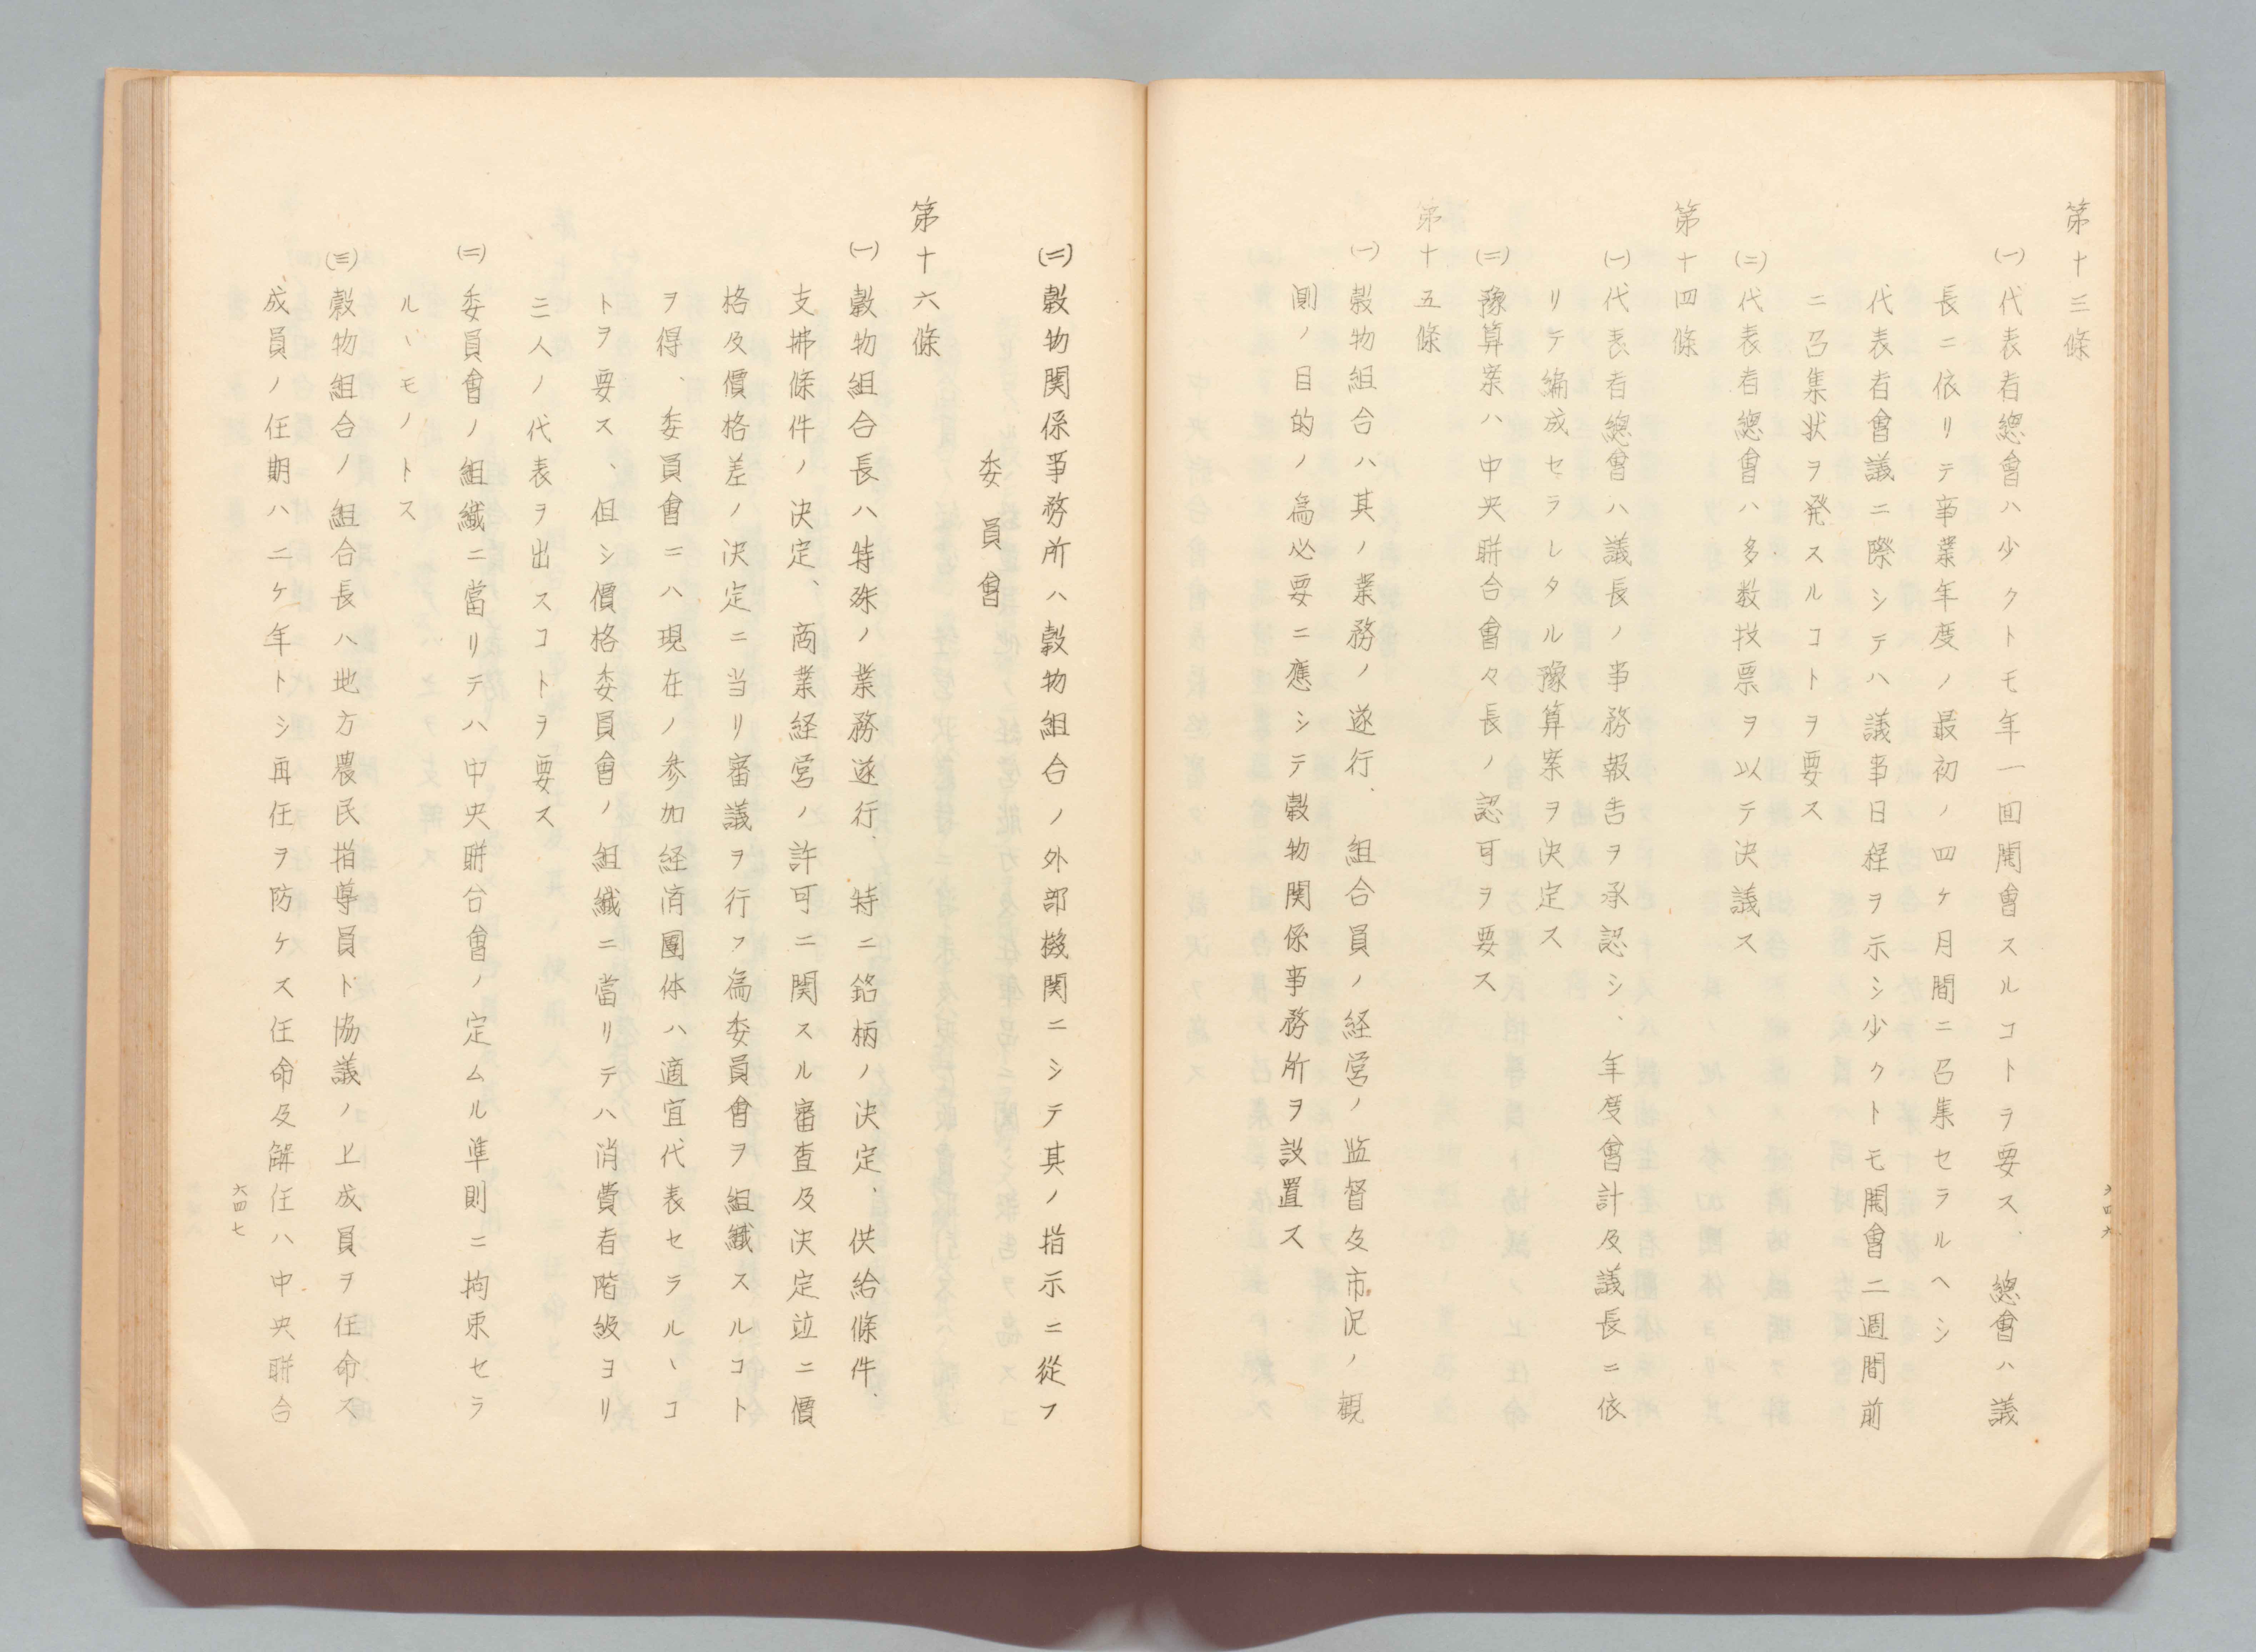 第十三條
(一)代表者總會ハ少クトモ年一回開會スルコトヲ要ス、總會ハ議
長ニ依リテ事業年度ノ最初ノ四ケ月間ニ召集セラルヘシ
代表者會議ニ際シテハ議事日程ヲ示シ少クトモ開會二週間前
ニ召集状ヲ発スルコトヲ要ス
(二)代表者總會ハ多数投票ヲ以テ決議ス
第十四條
(一)代表者總會ハ議長ノ事務報告ヲ承認シ、年度會計及議長ニ依
リテ編成セラレタル豫算案ヲ決定ス
(二)豫算案ハ中央聯合會々長ノ認可ヲ要ス
第十五條
(一)穀物組合ハ其ノ業務ノ遂行、組合員ノ経営ノ監督及市況ノ観
測ノ目的ノ為必要ニ應シテ穀物関係事務所ヲ設置ス
六四六
(二)穀物関係事務所ハ穀物組合ノ外部機関ニシテ其ノ指示ニ從フ
委員會
第十六條
(一)穀物組合長ハ特殊ノ業務遂行、特ニ銘柄ノ決定、供給條件、
支拂條件ノ決定、商業経営ノ許可ニ関スル審査及決定竝ニ價
格及價格差ノ決定ニ当リ審議ヲ行フ為委員會ヲ組織スルコト
ヲ得、委員會ニハ現在ノ参加経済團体ハ適宜代表セラルヽコ
トヲ要ス、但シ價格委員會ノ組織ニ當リテハ消費者階級ヨリ
三人ノ代表ヲ出スコトヲ要ス
(二)委員會ノ組織ニ當リテハ中央聯合會ノ定ムル準則ニ拘束セラ
ルヽモノトス
(三)穀物組合ノ組合長ハ地方農民指導員ト協議ノ上成員ヲ任命ス、
成員ノ任期ハ二ケ年トシ再任ヲ防ケス任命及解任ハ中央聯合
六四七